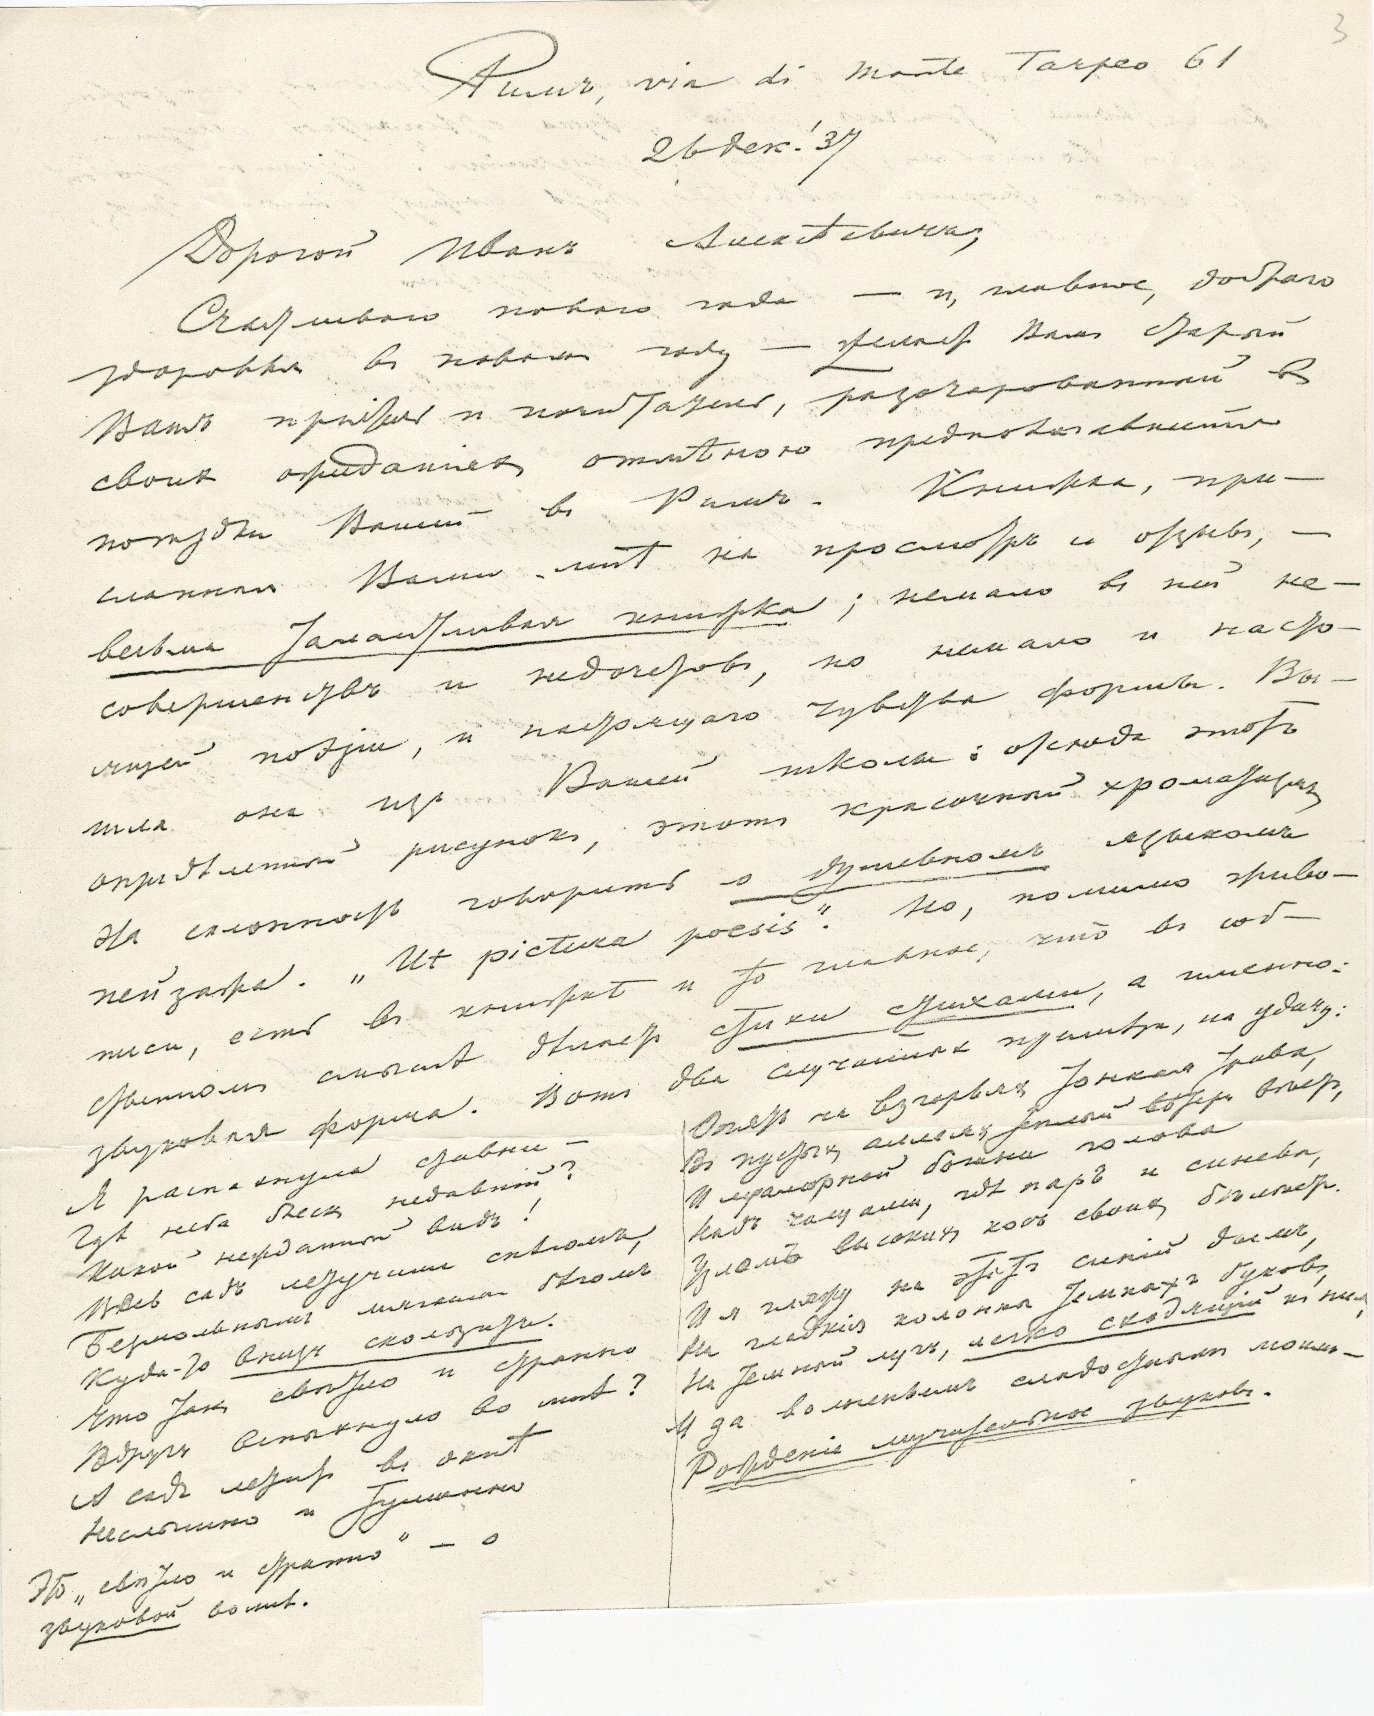 3
Римъ, via di Monte Tarpeo 61
26 дек. '37
Дорогой Иванъ Алексѣевичъ,
Счастливаго новаго года — и, главное, добраго
здоровья въ новомъ году — желаетъ Вамъ старый
Вашъ пріятель и почитатель, разочарованный въ
своихъ ожиданіяхъ отмѣною предполагавшейся
поѣздки Вашей въ Римъ. Книжка, при-
сланная Вами мнѣ на просмотръ и отзывъ, —
весьма талантливая книжка; немало въ ней не-
совершенствъ и недочетовъ, но немало и насто-
ящей поэзіи, и настоящаго чувства формы. Вы-
шла она изъ Вашей школы: отсюда этотъ
опредѣленный рисунокъ, этотъ красочный хроматизмъ,
эта склонность говорить о душевномъ языкомъ
пейзажа. „Ut pictura poesis". Но, помимо живо-
писи, есть въ книжкѣ и то главное, что въ соб-
ственномъ смыслѣ дѣлаетъ стихи стихами, а именно:
звуковая форма. Вотъ два случайныхъ примѣра, на удачу:
Я распахнула ставни —
Гдѣ неба блескъ недавній?
Какой нежданный видъ!
Весь садъ летучимъ снѣгомъ,
Безмолвнымъ мягкимъ бѣгомъ
Куда-то внизъ скользитъ.
Что такъ свѣтло и странно
Вдругъ вспыхнуло во мнѣ?
А садъ летитъ въ окнѣ
Неслышно и туманно
Это „свѣтло и странно" — о
звуковой волнѣ.
Опять на взгорьяхъ тонкая трава,
Въ пустыхъ аллеяхъ теплый вѣтеръ вѣетъ,
И мраморной богини голова
Надъ чащами, гдѣ паръ и синева,
Узломъ высокихъ косъ своихъ бѣлѣетъ.
И я гляжу на этотъ синій дымъ,
На гладкія колонны темныхъ буковъ,
На темный лугъ, легко сходящій къ нимъ,
И за волненьемъ сладостнымъ моимъ —
Рожденіе мучительное звуковъ.